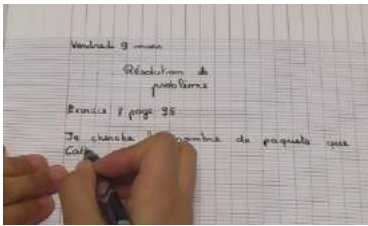 Vendredi 9 mars
Résolution de
problème
Exercice 7 page 95
Je cherche le nombre de paquets que
Cat